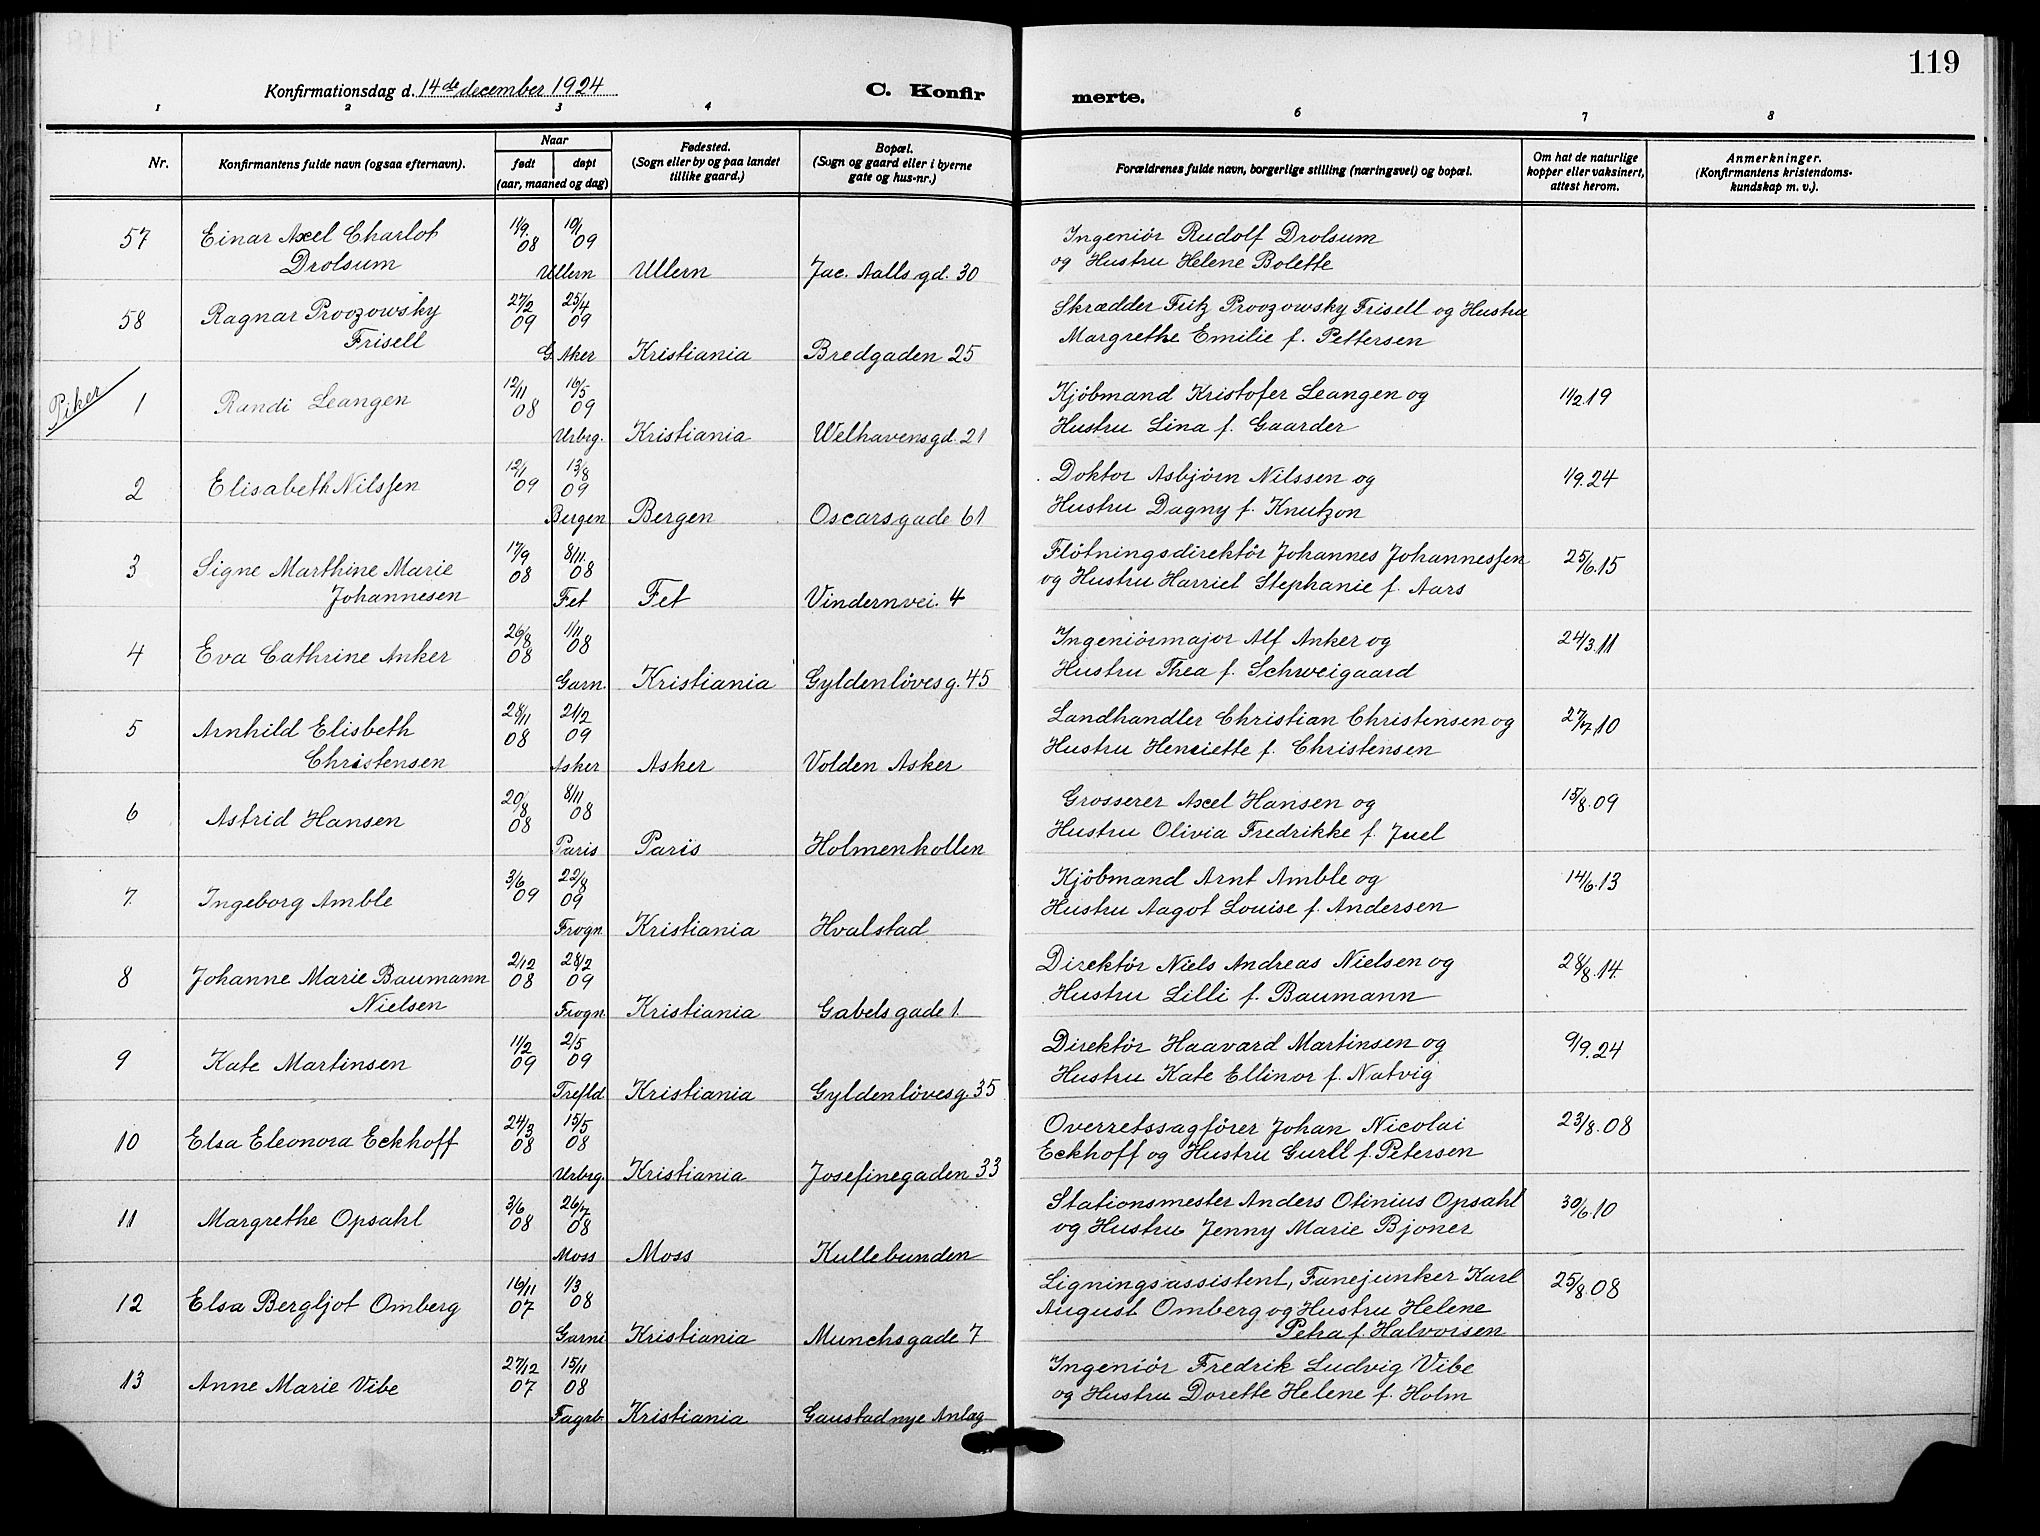 119
Konfirmationsdag d. 14de december 1924
C. Konfirmerte.
1 2 3 4 6 7 8
Nr.
Konfirmantens fulde navn (ogsaa efternavn).
Naar
født døpt
(aar, maaned og dag)
Fødested.
(Sogn eller by og paa landet
tillike gaard.)
Bopæl.
(Sogn og gaard eller i byerne
gate og hus-nr.)
Forældrenes fulde navn, borgerlige stilling (næringsvei) og bopæl.
Om hat de naturlige
kopper eller vaksinert,
attest herom.
Anmerkninger.
(Konfirmantens kristendoms-
kundskap m. v.).
57 Einar Axel Charlot 11/9. 08 10/1 09 Ingeniör Rudolf Drolsum
Drolsum Ullern Ullern Jac. Aalls gd. 30 og Hustru Helene Bolette
58 Ragnar Proozowsky 27/2 09 25/4 09 Skrædder Fritz Proozowsky Frisell og Hustru
Frisell G. Aker Kristiania Bredgaden 25 Margrethe Emilie f. Pettersen
Piker
1 Randi Leangen 12/11 08 16/5 09 Kjöbmand Kristofer Leangen og 11/2 19
Urbrg. Kristiania Welhavensgd. 21 Hustru Lina f. Gaarder
2 Elisabeth Nilssen 12/1 09 13/8 09 Doktor Asbjörn Nilssen og 1/9. 24
Bergen Bergen Oscarsgade 61 Hustru Dagny f. Knutzon
3 Signe Marthine Marie 17/9 08 8/11 08 Flötningsdirektör Johannes Johannessen 25/6. 15
Johannesen Fet Fet Vindernvei. 4 og Hustru Harriet Stephanie f. Aars
4 Eva Cathrine Anker 26/8 08 1/11 08 Ingeniörmajor Alf Anker og 24/3. 11
Garn. Kristiania Gyldenlövesg. 45 Hustru Thea f. Schweigaard
5 Arnhild Elisbeth 28/11 08 21/2 09 Landhandler Christian Christensen og 27/7. 10
Christensen Asker Asker Volden Asker Hustru Henriette f. Christensen
6 Astrid Hansen 20/8 08 8/11 08 Grosserer Axel Hansen og 15/8. 09
Paris Paris Holmenkollen Hustru Olivia Fredrikke f. Juel
7. Ingeborg Amble 3/6 09 22/8 09 Kjöbmand Arnt Amble og 14/6. 13
Frogn. Kristiania Hvalstad Hustru Aagot Louise f. Andersen
8 Johanne Marie Baumann 2/12 08 28/2 09 Direktör Niels Andreas Nielsen og 28/8. 14.
Nielsen Frogn. Kristiania Gabelsgade 1. Hustru Lilli f. Baumann
9 Kate Martinsen 11/2 09 2/5 09 Direktör Haavard Martinsen og 9/9. 24
Trefld. Kristiania Gyldenlövesg. 35 Hustru Kate Ellinor f. Natvig
10 Elsa Eleonora Eckhoff 24/3 08 15/5 08 Overretssagförer Johan Nicolai 23/8. 08
Urbrg. Kristiania Josefinegaden 33 Eckhoff og Hustru Gurll f. Petersen
11 Margrethe Opsahl 3/6 08 26/7 08 Stationsmester Anders Otinius Opsahl 30/6. 10
Moss Moss Kullebunden og Hustru Jenny Marie Bjoner
12 Elsa Bergljot Omberg 16/11 07 1/3 08 Ligningsassistent, Fanejunker Karl 25/8. 08
August Omberg og Hustru Helene
Garni Kristiania Munchsgade 7 Petra f. Halvorsen
13 Anne Marie Vibe 27/12 07 15/11 08 Ingeniör Fredrik Ludvig Vibe
Fagrb. Kristiania Gaustad nye Anlæg og Hustru Dorette Helene f. Holm